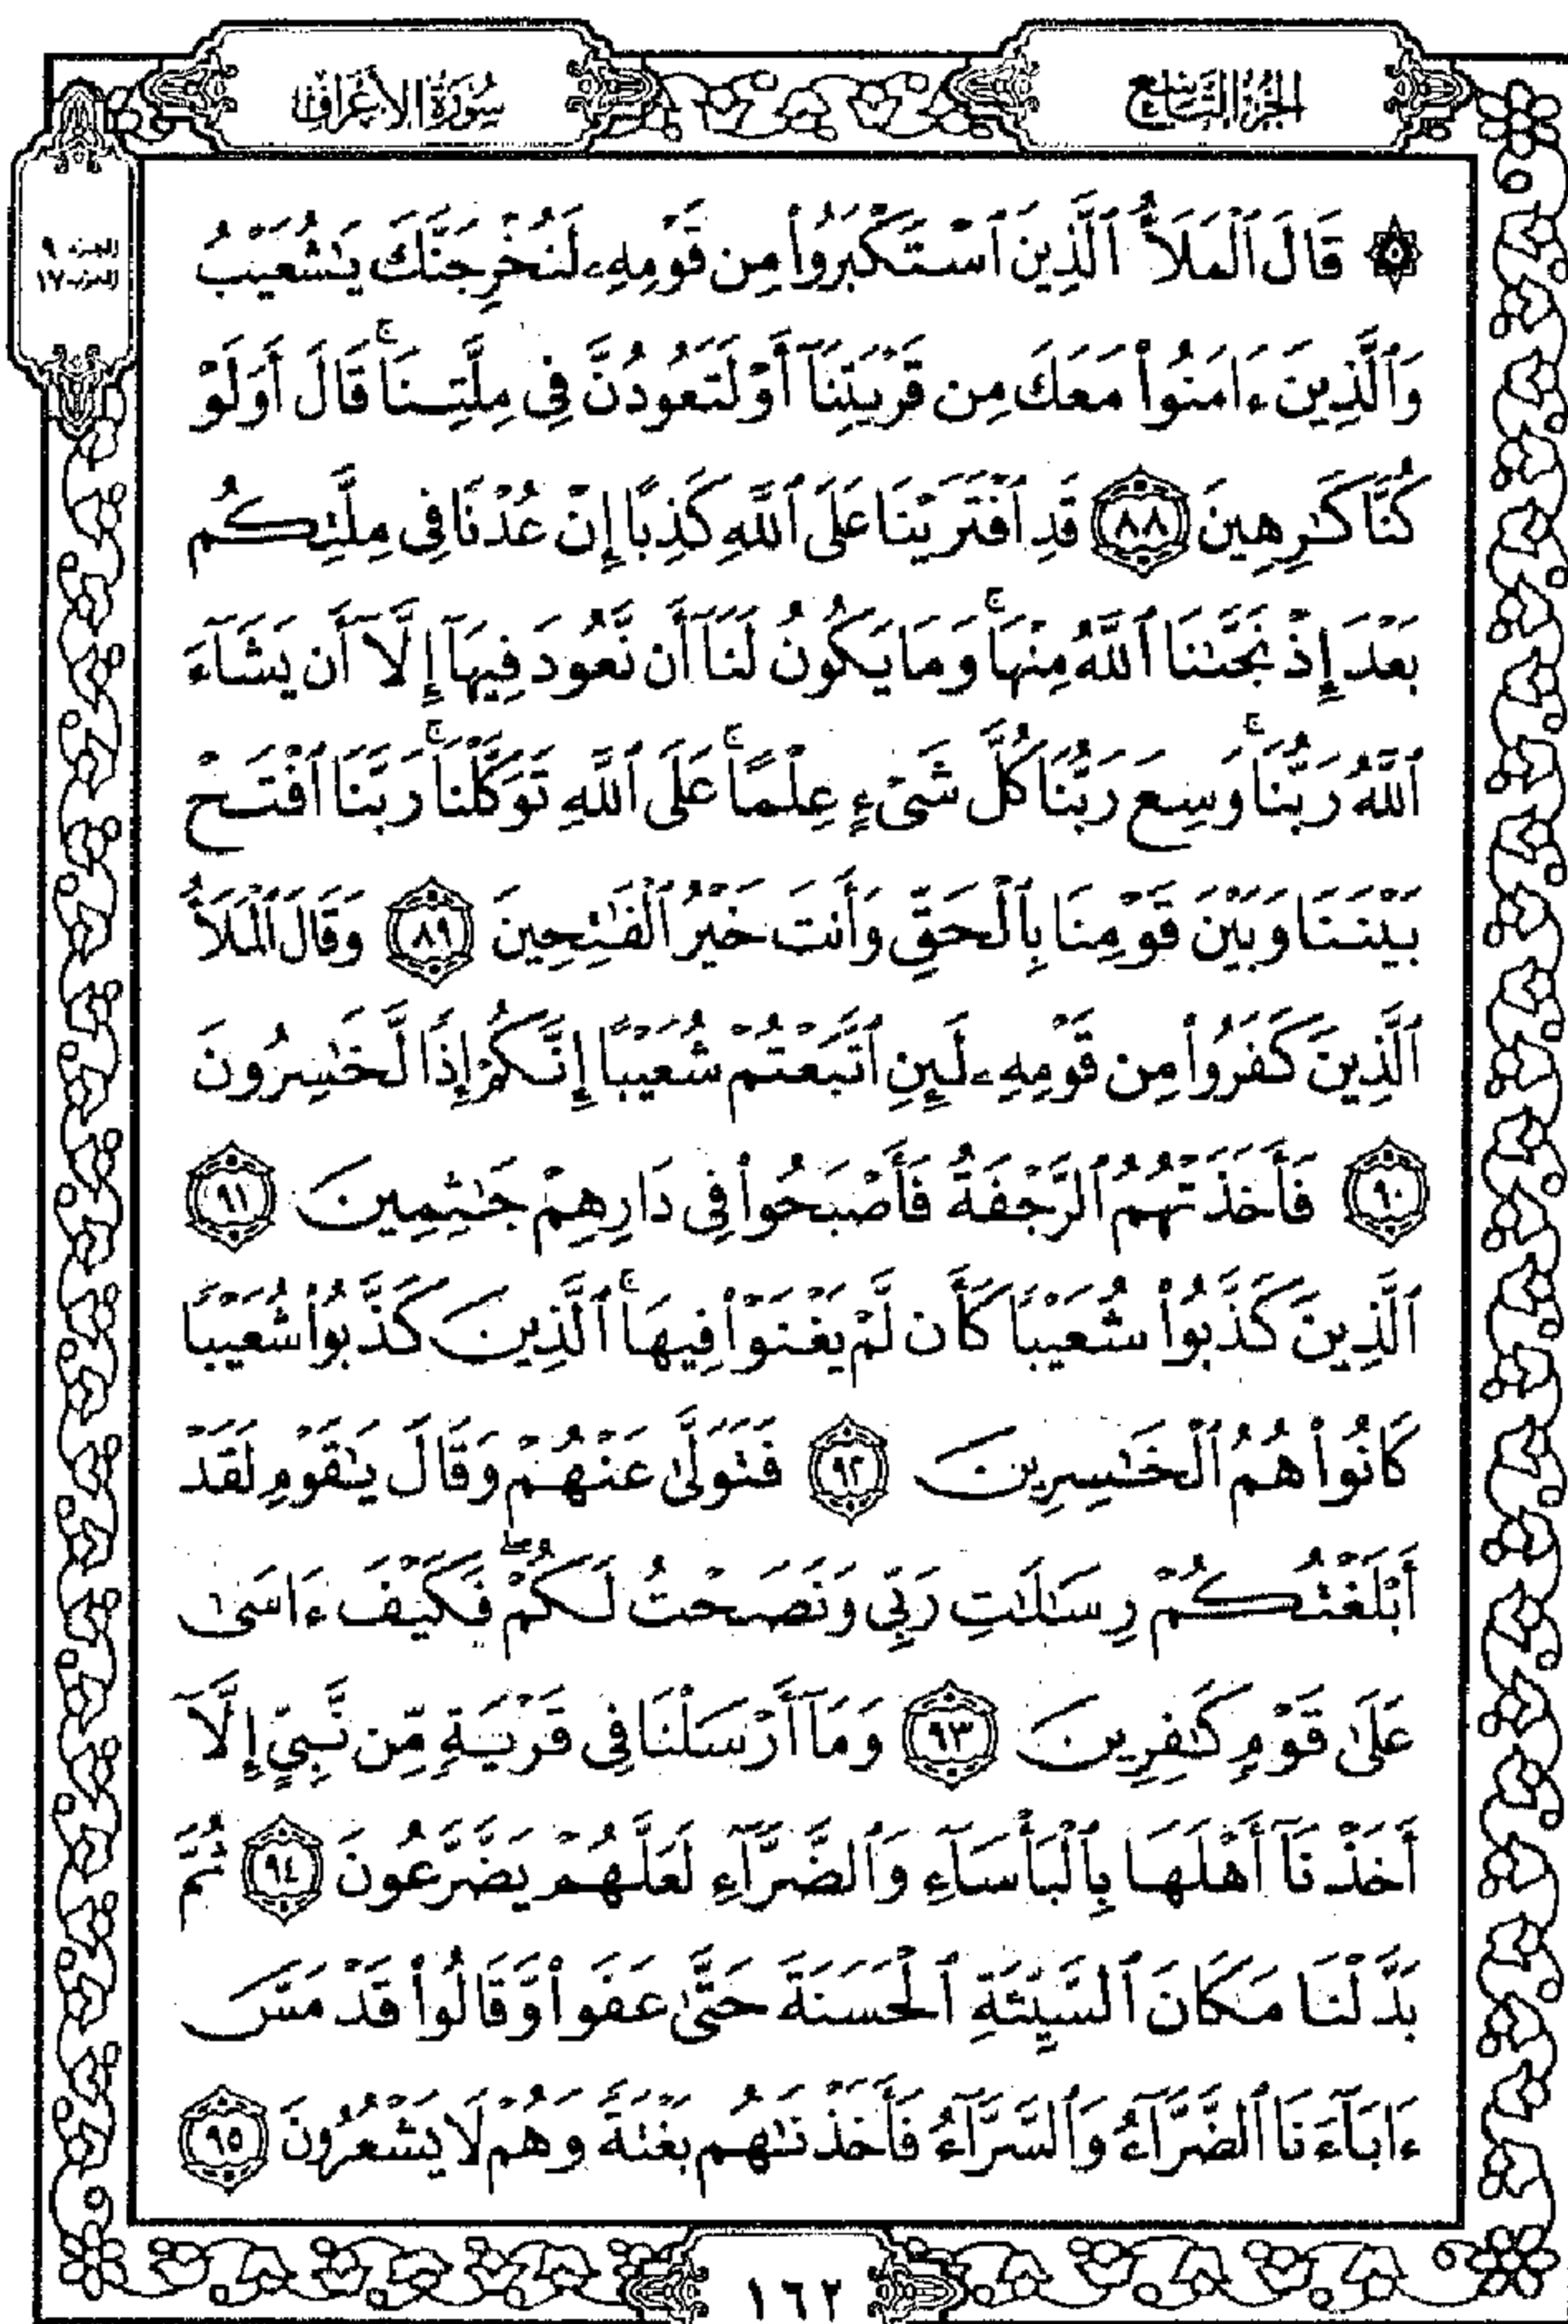 الجزء التاسع
سورة الأعراف
الجزء ٩
الحزب ١٧
۞ قَالَ ٱلْمَلَأُ ٱلَّذِينَ ٱسْتَكْبَرُوا۟ مِن قَوْمِهِۦ لَنُخْرِجَنَّكَ يَـٰشُعَيْبُ
وَٱلَّذِينَ ءَامَنُوا۟ مَعَكَ مِن قَرْيَتِنَآ أَوْ لَتَعُودُنَّ فِى مِلَّتِنَا ۚ قَالَ أَوَلَوْ
كُنَّا كَـٰرِهِينَ ٨٨ قَدِ ٱفْتَرَيْنَا عَلَى ٱللَّهِ كَذِبًا إِنْ عُدْنَا فِى مِلَّتِكُم
بَعْدَ إِذْ نَجَّىٰنَا ٱللَّهُ مِنْهَا ۚ وَمَا يَكُونُ لَنَآ أَن نَّعُودَ فِيهَآ إِلَّآ أَن يَشَآءَ
ٱللَّهُ رَبُّنَا ۚ وَسِعَ رَبُّنَا كُلَّ شَىْءٍ عِلْمًا ۚ عَلَى ٱللَّهِ تَوَكَّلْنَا ۚ رَبَّنَا ٱفْتَحْ
بَيْنَنَا وَبَيْنَ قَوْمِنَا بِٱلْحَقِّ وَأَنتَ خَيْرُ ٱلْفَـٰتِحِينَ ٨٩ وَقَالَ ٱلْمَلَأُ
ٱلَّذِينَ كَفَرُوا۟ مِن قَوْمِهِۦ لَئِنِ ٱتَّبَعْتُمْ شُعَيْبًا إِنَّكُمْ إِذًا لَّخَـٰسِرُونَ
٩٠ فَأَخَذَتْهُمُ ٱلرَّجْفَةُ فَأَصْبَحُوا۟ فِى دَارِهِمْ جَـٰثِمِينَ ٩١
ٱلَّذِينَ كَذَّبُوا۟ شُعَيْبًا كَأَن لَّمْ يَغْنَوْا۟ فِيهَا ۚ ٱلَّذِينَ كَذَّبُوا۟ شُعَيْبًا
كَانُوا۟ هُمُ ٱلْخَـٰسِرِينَ ٩٢ فَتَوَلَّىٰ عَنْهُمْ وَقَالَ يَـٰقَوْمِ لَقَدْ
أَبْلَغْتُكُمْ رِسَـٰلَـٰتِ رَبِّى وَنَصَحْتُ لَكُمْ ۖ فَكَيْفَ ءَاسَىٰ
عَلَىٰ قَوْمٍ كَـٰفِرِينَ ٩٣ وَمَآ أَرْسَلْنَا فِى قَرْيَةٍ مِّن نَّبِىٍّ إِلَّآ
أَخَذْنَآ أَهْلَهَا بِٱلْبَأْسَآءِ وَٱلضَّرَّآءِ لَعَلَّهُمْ يَضَّرَّعُونَ ٩٤ ثُمَّ
بَدَّلْنَا مَكَانَ ٱلسَّيِّئَةِ ٱلْحَسَنَةَ حَتَّىٰ عَفَوا۟ وَّقَالُوا۟ قَدْ مَسَّ
ءَابَآءَنَا ٱلضَّرَّآءُ وَٱلسَّرَّآءُ فَأَخَذْنَـٰهُم بَغْتَةً وَهُمْ لَا يَشْعُرُونَ ٩٥
١٦٢